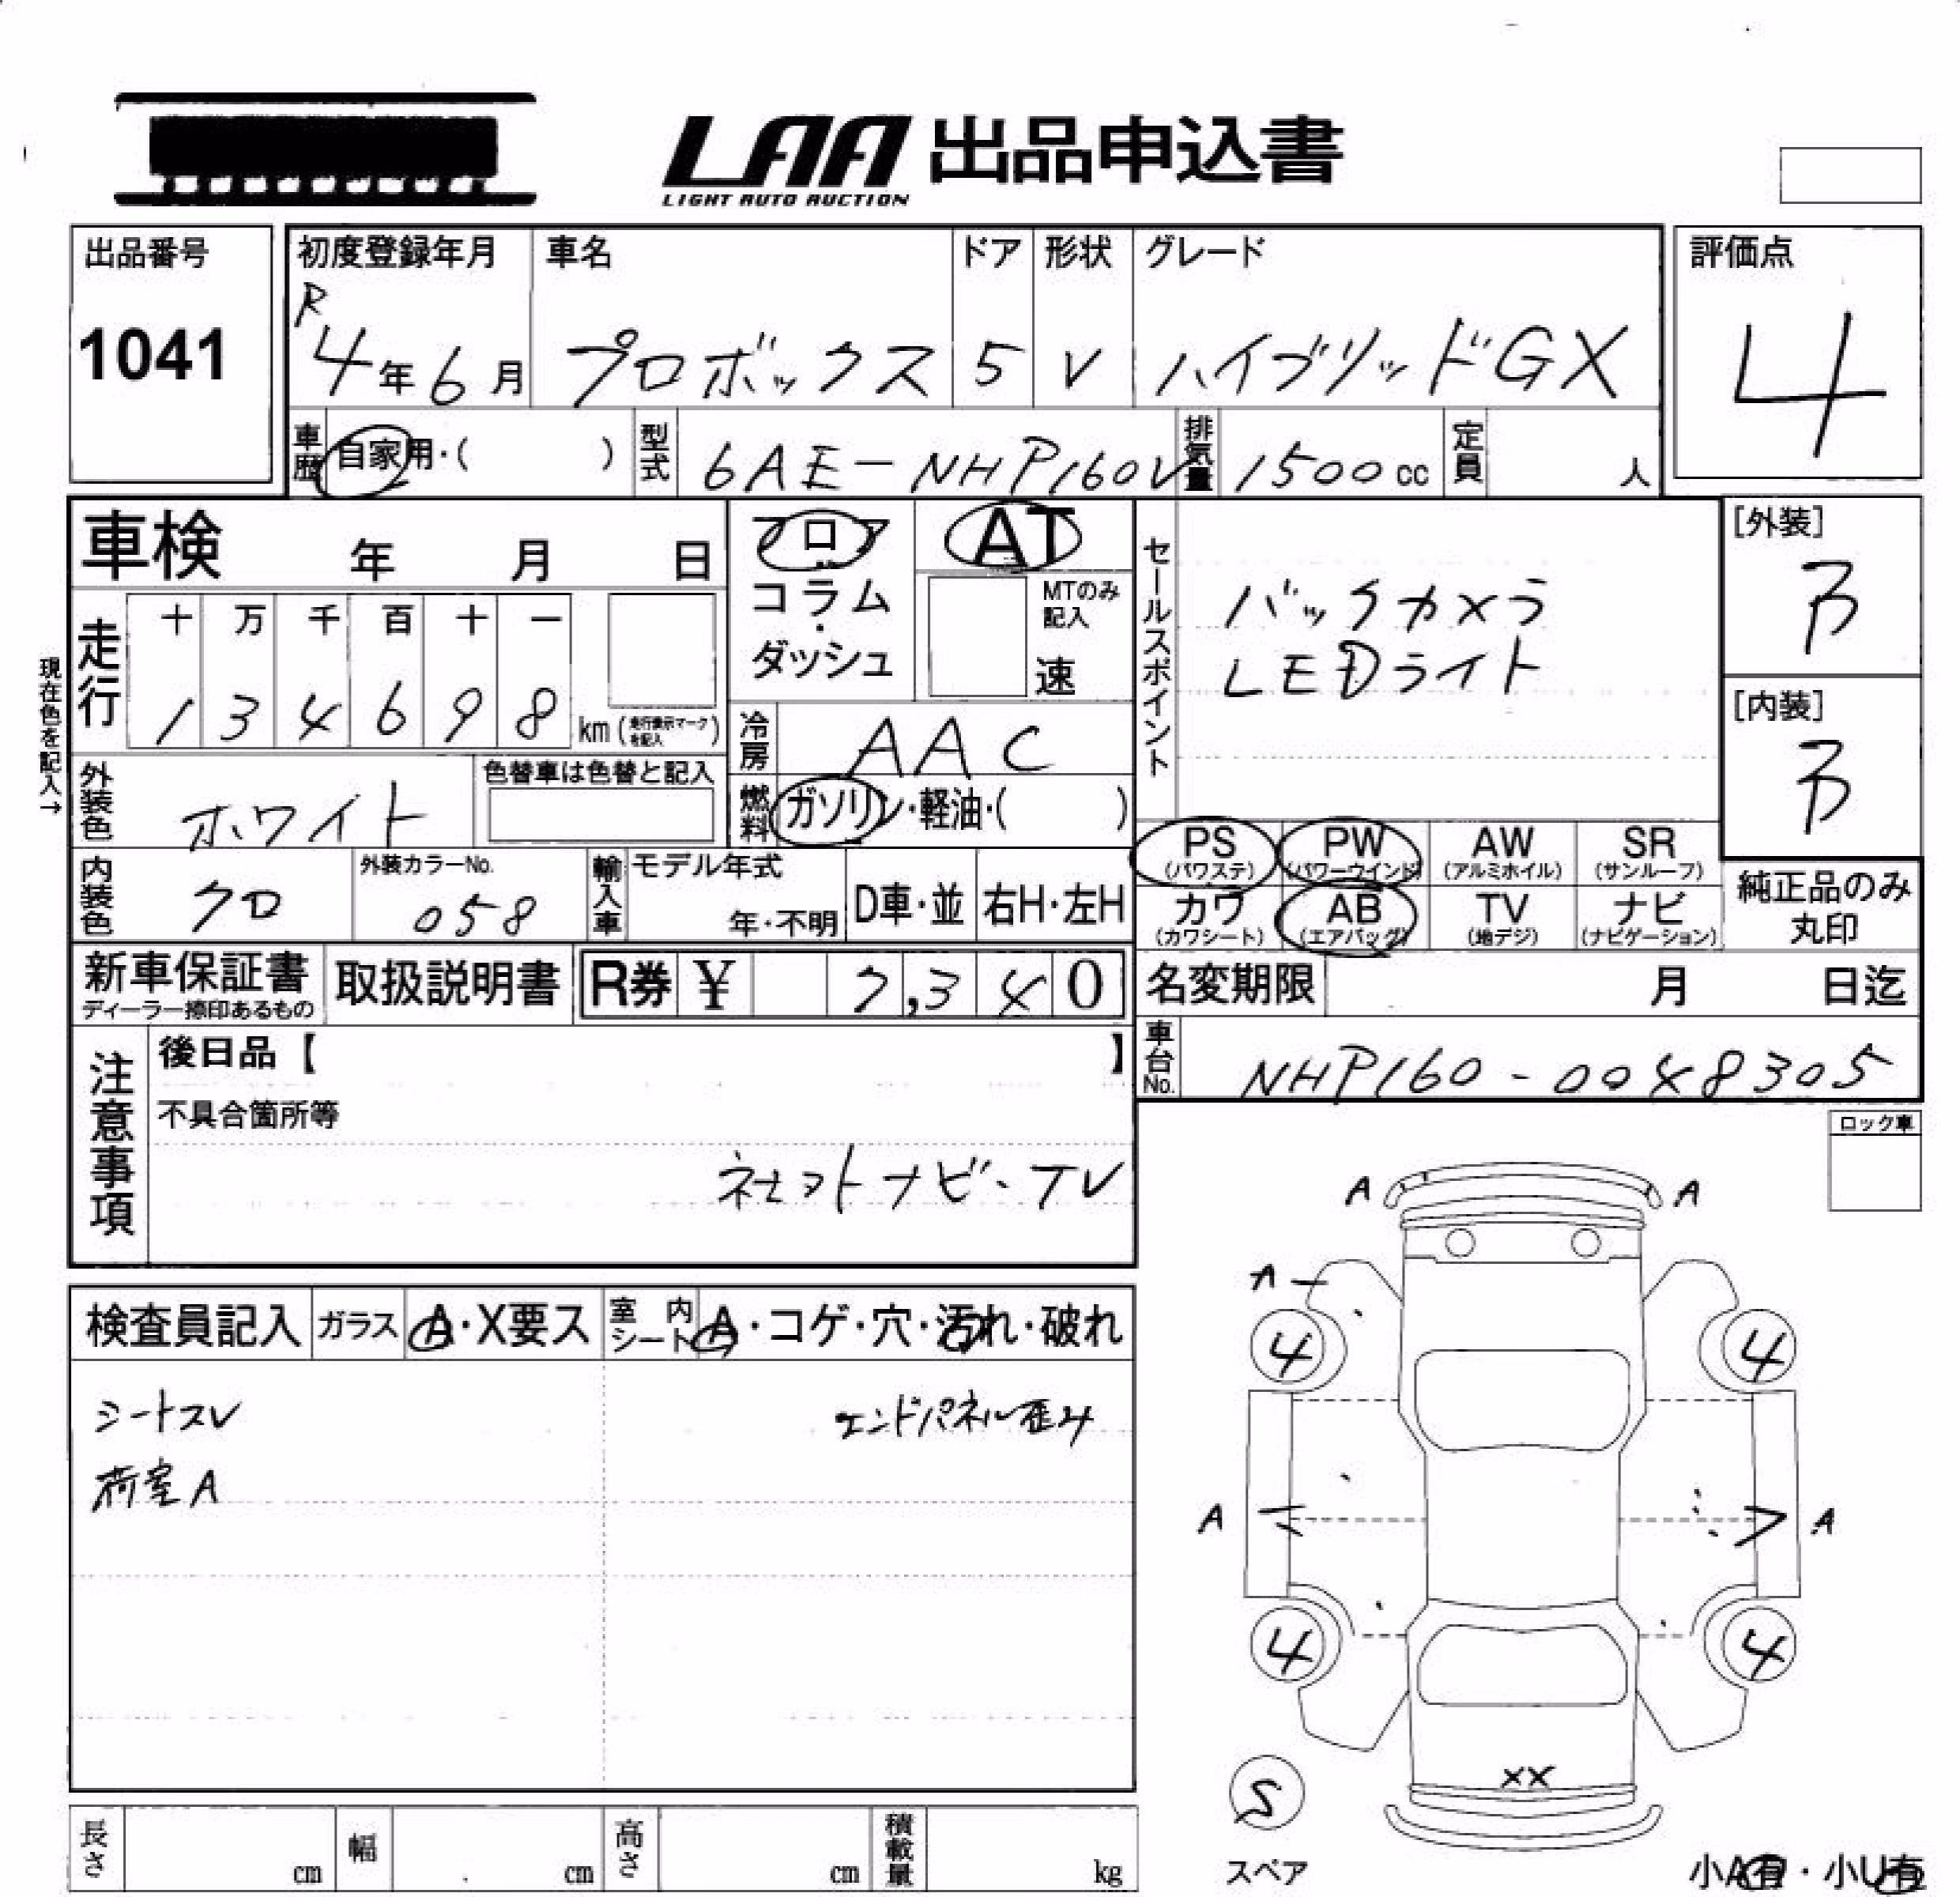 LAA 出品申込書
LIGHT AUTO AUCTION
出品番号
1041
初度登録年月
R
4年6月
車名
プロボックス
ドア
5
形状
V
グレード
ハイブリッドGX
評価点
4
車歴
自家用・( )
型式
6AE-NHP160V
排気量
1500cc
定員
人
車検 年 月 日
フロア
コラム・
ダッシュ
AT
MTのみ
記入
速
セールスポイント
バックカメラ
LEDライト
[外装]
B
[内装]
B
現在色を記入→
走行
十 万 千 百 十 一
1 3 4 6 9 8
km (走行表示マークを記入)
冷房
AAC
燃料
ガソリン・軽油・( )
外装色
ホワイト
色替車は色替と記入
内装色
クロ
外装カラーNo.
058
輸入車
モデル年式
年・不明
D車・並
右H・左H
PS (パワステ)
PW (パワーウインド)
AW (アルミホイル)
SR (サンルーフ)
カワ (カワシート)
AB (エアバッグ)
TV (地デジ)
ナビ (ナビゲーション)
純正品のみ
丸印
新車保証書
ディーラー捺印あるもの
取扱説明書
R券 ¥ 7,340
名変期限 月 日迄
車台No.
NHP160-0048305
注意事項
後日品【 】
不具合箇所等
ネセットナビ・TV
ロック車
検査員記入
ガラス
A・X要ス
室内シート
A・コゲ・穴・汚れ・破れ
シートスレ
エンドパネル歪み
荷室A
A A
A
4 4
A A
4 4
XX
S
スペア
小A有・小U有
長さ cm
幅 cm
高さ cm
積載量 kg